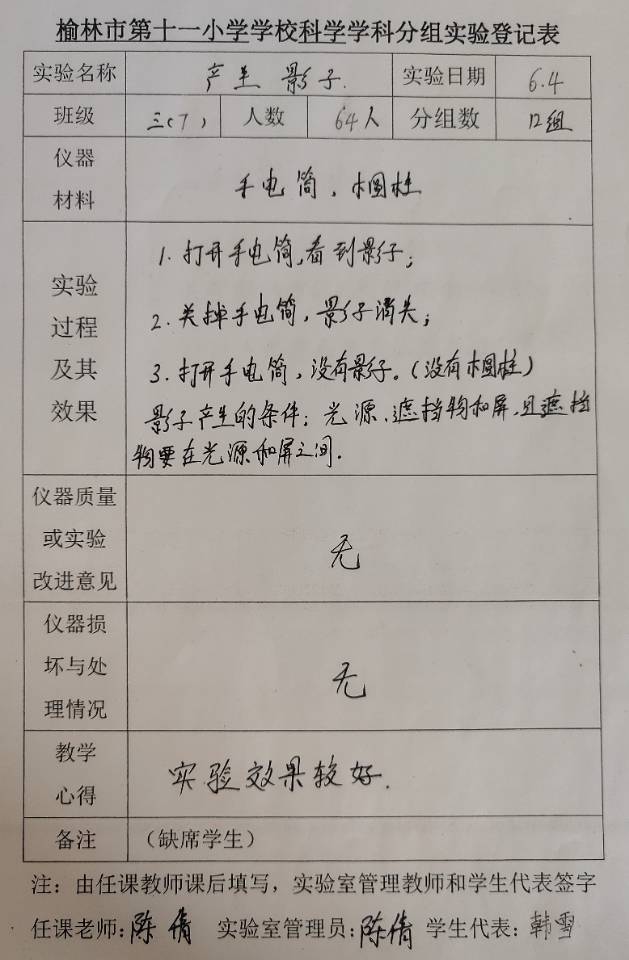 榆林市第十一小学学校科学学科分组实验登记表
实验名称 产生 影子. 实验日期 6.4
班级 三(7) 人数 64人 分组数 12组
仪器
材料
手电筒、木圆柱
实验
过程
及其
效果
1. 打开手电筒,看到影子;
2. 关掉手电筒,影子消失;
3. 打开手电筒,没有影子。(没有木圆柱)
影子产生的条件:光源、遮挡物和屏,且遮挡
物要在光源和屏之间.
仪器质量
或实验
改进意见
无
仪器损
坏与处
理情况
无
教学
心得
实验效果较好.
备注 (缺席学生)
注:由任课教师课后填写,实验室管理教师和学生代表签字
任课老师:陈倩 实验室管理员:陈倩 学生代表:韩雪